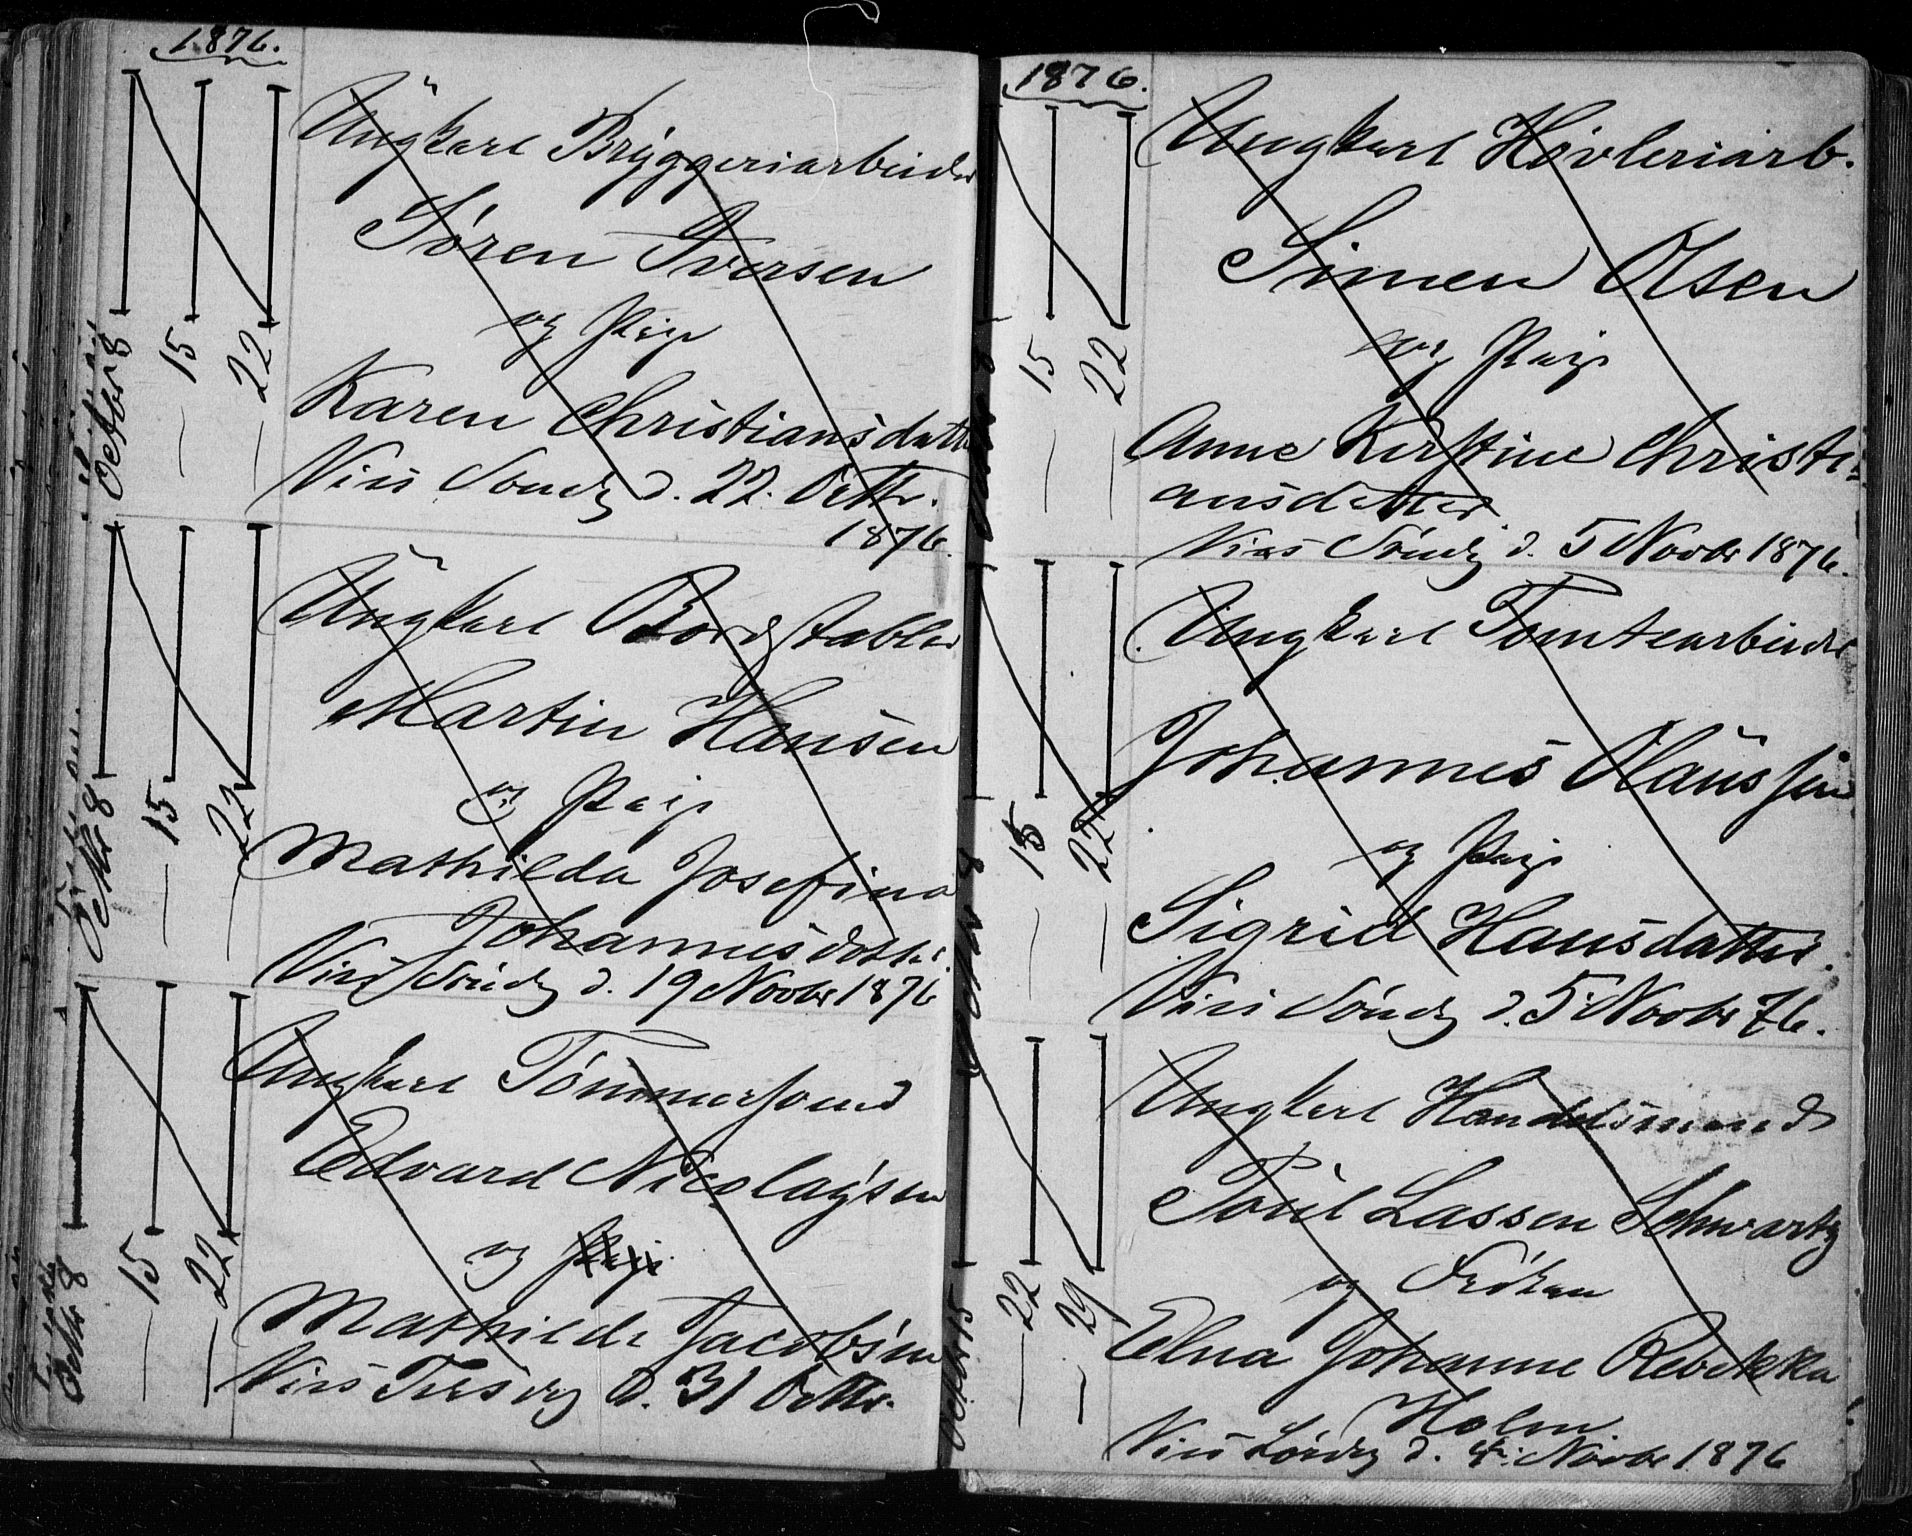 1876.
Octbr 8
15
22
Ungkarl Bryggeriarbeider
Søren Iversen
og Pige
Karen Christiansdatter
Vies Søndg d. 22. Octbr.
1876.
Octbr 8
15
22
Ungkarl Bordstabler
Martin Hansen
og Pige
Mathilda Josefina
Johannesdotter.
Vies Søndg d. 19 Novbr 1876
Octbr 8
15
22
Ungkarl Tømmersvend
Edvard Nicolaysen
og Pige
Mathilde Jacobsen
Vies Tirsdag d. 31 Octbr.
1876.
Octbr 8
15
22
Ungkarl Høvleriarb.
Simen Olsen
og Pige
Anne Kirstine Christi-
ansdatter.
Vies Søndg d. 5 Novbr 1876.
Octbr 8
15
22
Ungkarl Tomtearbeider
Johannes Olaussen
og Pige
Sigrid Hansdatter.
Vies Søndg d. 5 Novbr 76.
Octbr 15
22
29
Ungkarl Handelsmand
Poul Lassen Schwartz
og Frøken
Elna Johanne Rebekka
Holm
Vies Lørdg d. 4. Novbr 1876